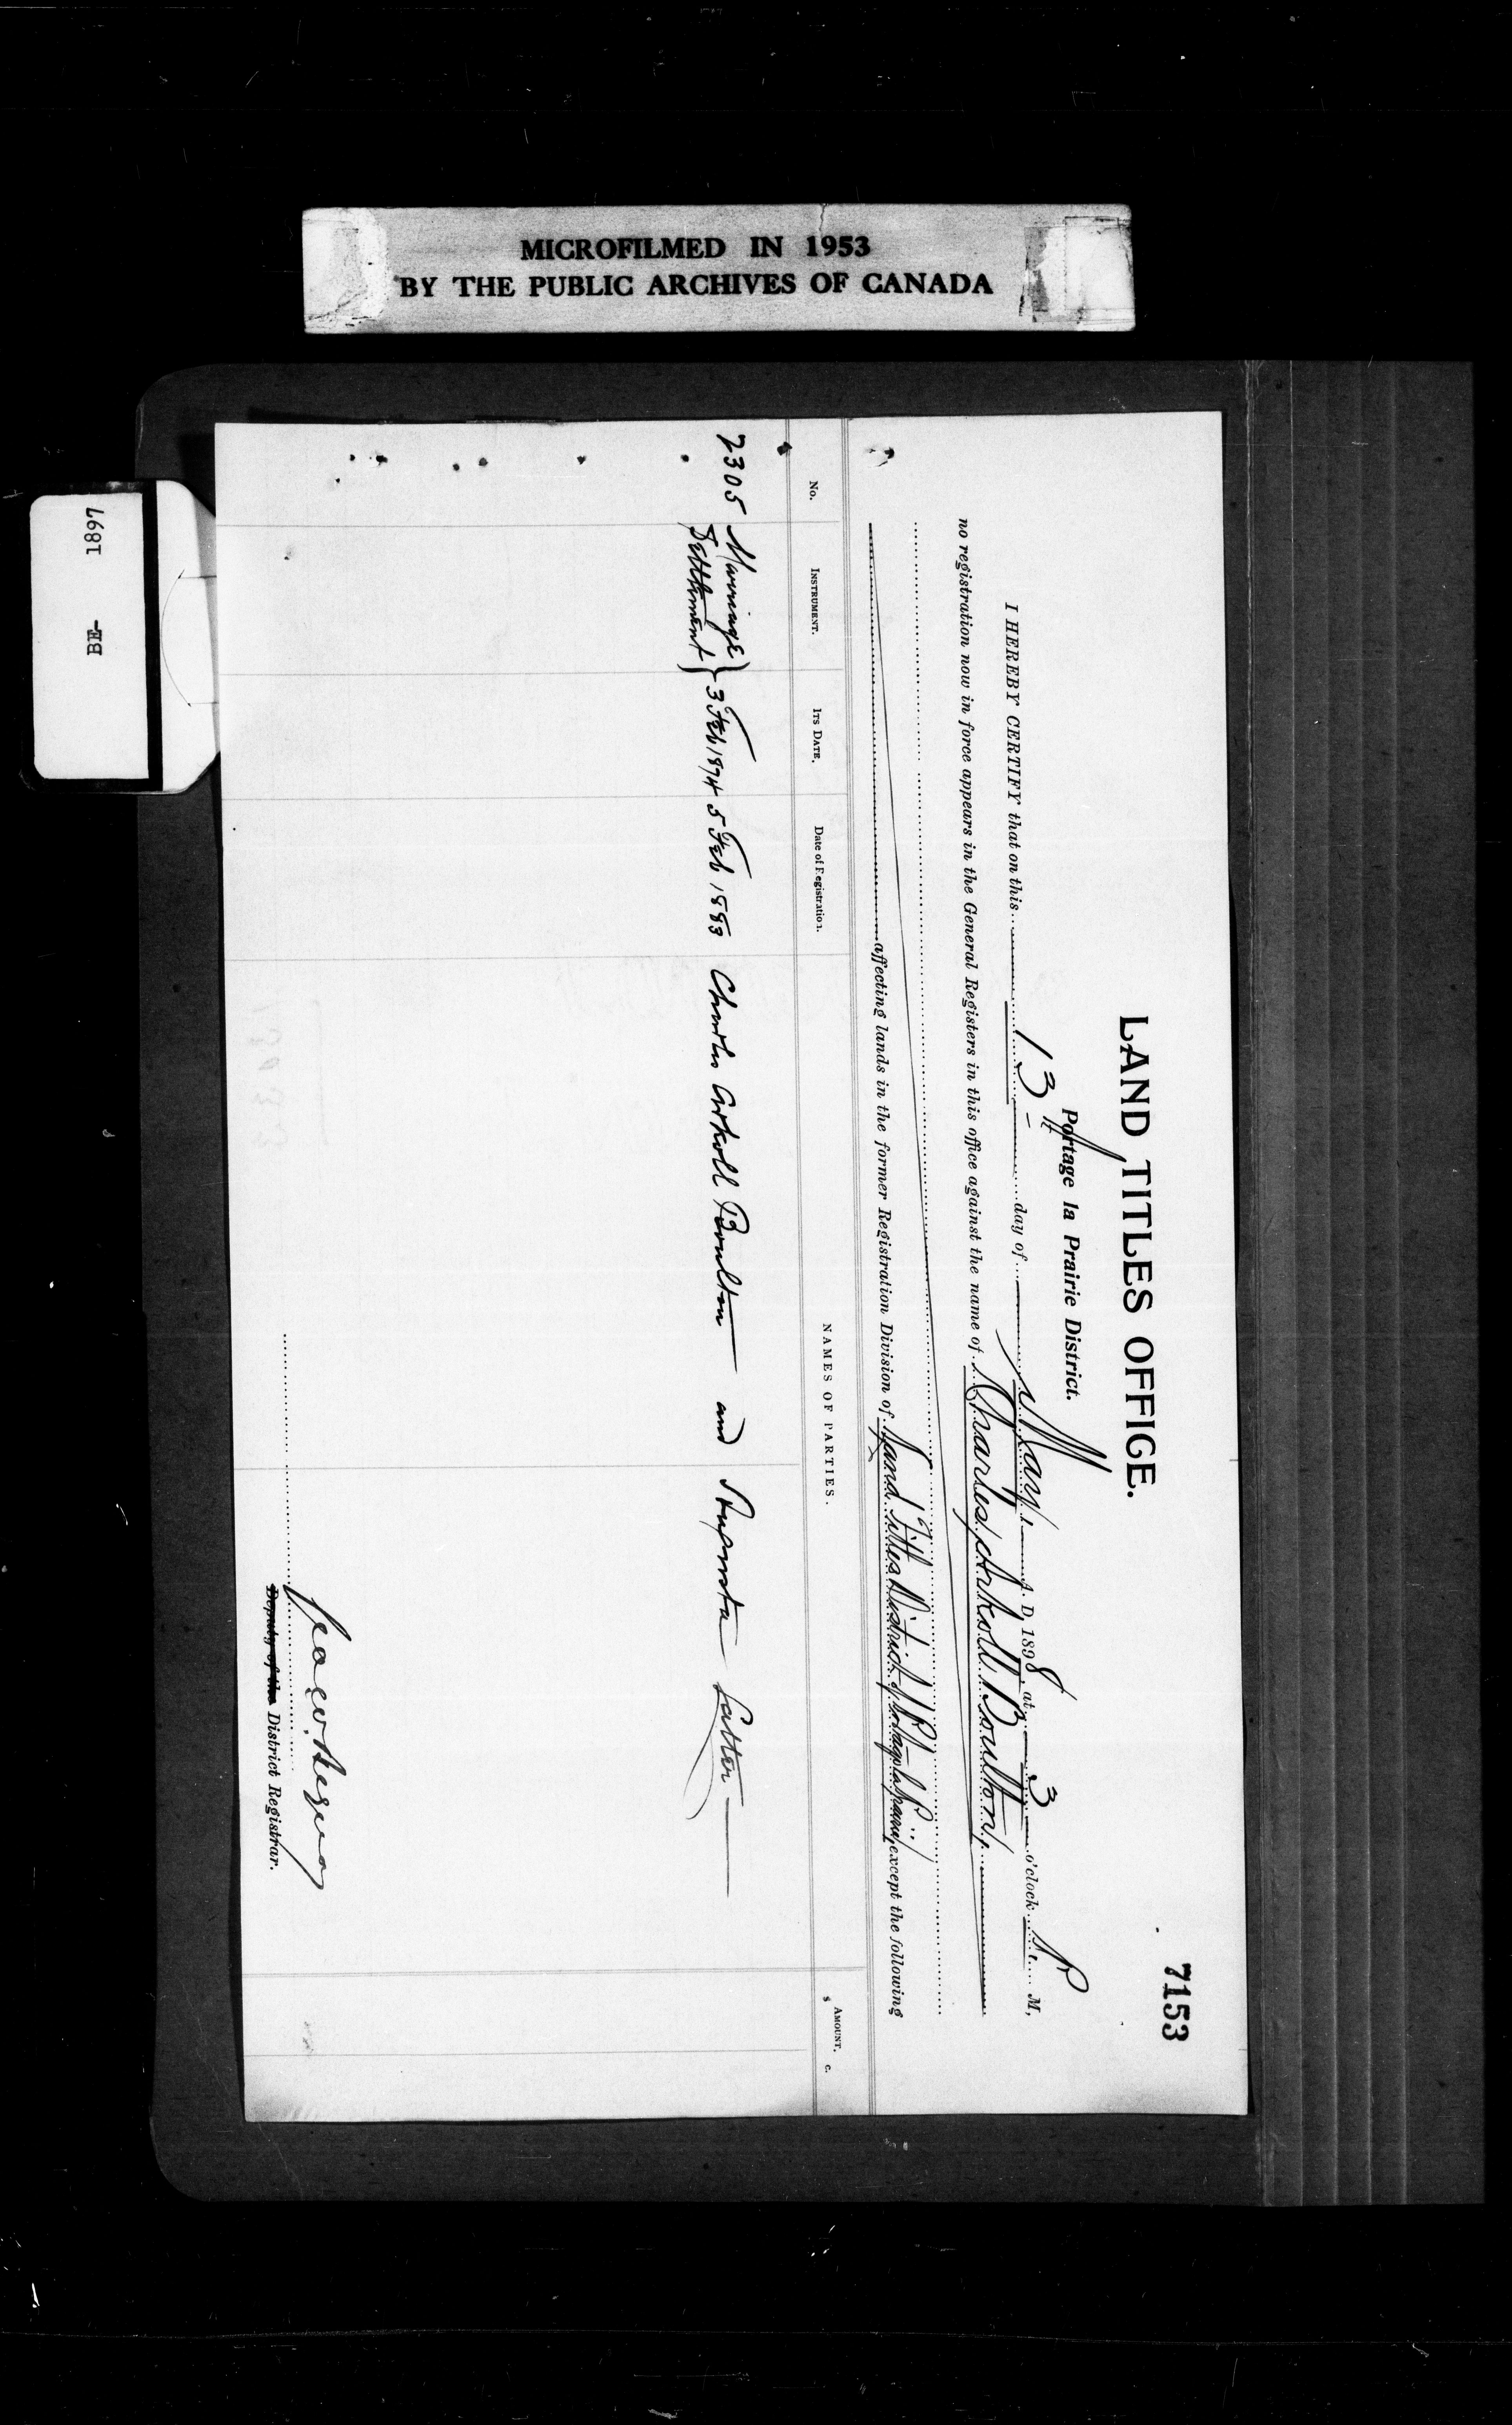 MICROFILMED IN 1953
BY THE PUBLIC ARCHIVES OF CANADA
BE- 1897
7153
LAND TITLES OFFICE.
Portage la Prairie District.
I HEREBY CERTIFY that on this 13th day of May, A. D. 1898, at 3 o'clock P. M,
no registration now in force appears in the General Registers in this office against the name of Charles Arkoll Boulton,
affecting lands in the former Registration Division of Land Titles District of Portage la Prairie, except the following
No. INSTRUMENT. ITS DATE. Date of Registration. NAMES OF PARTIES. AMOUNT.
$ c.
2305 Marriage Settlement } 3 Feb 1874 5 Feb 1883 Charles Arkoll Boulton and Augusta Latter
Deputy of the District Registrar.